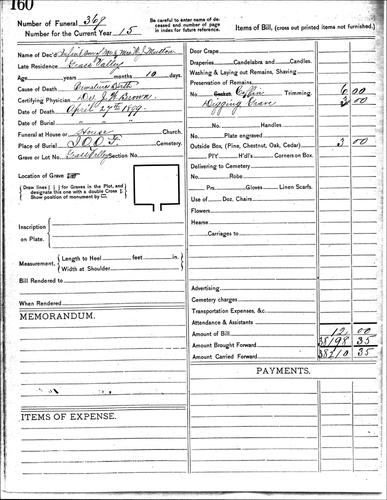 160
Number of Funeral 369
Number for the Current Year 15
Be careful to enter name of deceased and number of page in index for future reference.
Items of Bill, (cross out printed items not furnished.)
Name of Dec'd Infant son of Mr & Mrs W J Mutton
Late Residence Grass Valley
Age, years months 10 days.
Cause of Death Premature Birth
Certifying Physician Drs J H Brown
Date of Death April 27th 1899.
Date of Burial " "
Funeral at House or House Church.
Place of Burial I O O F Cemetery.
Grave or Lot No. Grass Valley Section No.
Location of Grave
Draw lines | | for Graves in the Plot, and designate this one with a double Cross
Show position of monument by
Inscription on Plate.
Measurement, Length to Heel feet in.
Width at Shoulder
Bill Rendered to
When Rendered
MEMORANDUM.
ITEMS OF EXPENSE.
Door Crape
Draperies Candelabra and Candles.
Washing & Laying out Remains, Shaving
Preservation of Remains
No. Casket Coffin Trimming. 6 00
Digging Grave 3 00
No. Handles
Plate engraved
Outside Box, (Pine, Chestnut, Oak, Cedar) 3 00
No. PLY H'dl's Corners on Box.
Delivering to Cemetery
No. Robe
Prs. Gloves Linen Scarfs.
Use of Doz. Chairs
Flowers
Hearse
Carriages to
Advertising
Cemetery charges
Transportation Expenses, &c.
Attendance & Assistants
Amount of Bill 12 00
Amount Brought Forward 38198 35
Amount Carried Forward 38210 35
PAYMENTS.